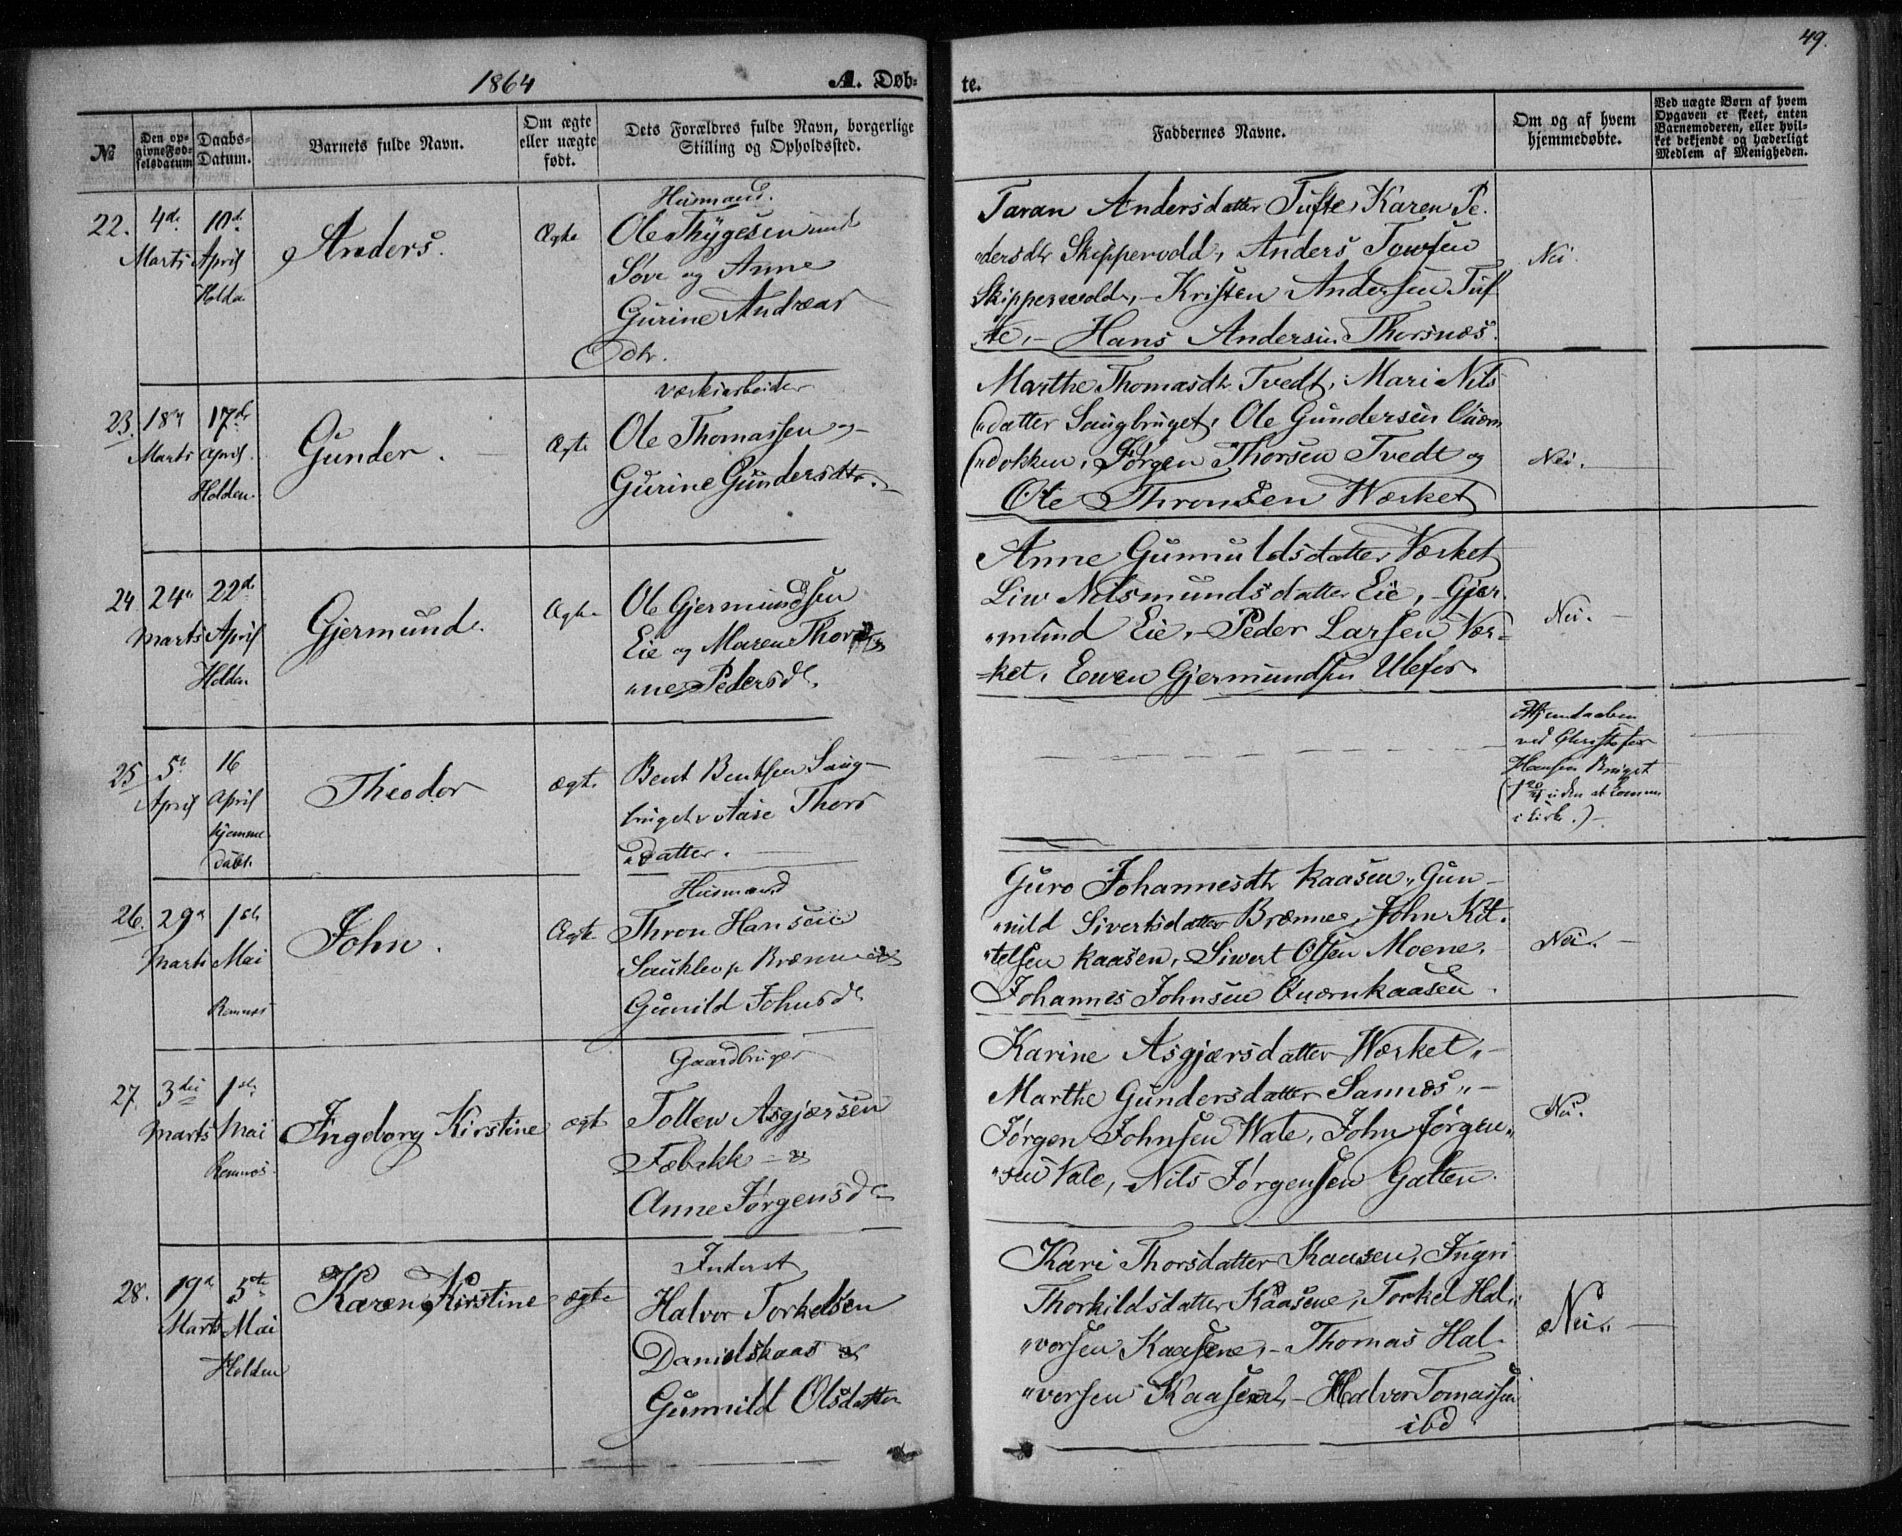 49.
1864
A. Døb-
te.
No
Den op-
givne Fød-
selsdatum
Daabs-
Datum.
Barnets fulde Navn.
Om ægte
eller uægte
født.
Dets Forældres fulde Navn, borgerlige
Stilling og Opholdssted.
Faddernes Navne.
Om og af hvem
hjemmedøbte.
Ved uægte Børn af hvem
Opgaven er skeet, enten
Barnemoderen, eller hvil-
ket bekjendt og hæderligt
Medlem af Menigheden.
22.
4de
Marts
10de
April
Holden
Anders.
Ægte
Husmand.
Ole Thygesen
Sove og Anne
Gurine Andreas
dtr.
Taran Andersdatter Tufte, Karen Pe.
dersdtr Skippervold, Anders
Skippervold, - Kristen Andersen Tuf
te, - Hans Andersen Thorsnæs.
Nei.
23.
18de
Marts
17de
April.
Holden
Gunder.
Ægte
Værksarbeider
Ole Thomassen og
Gurine Gundersdtr.
Marthe Thomasdtr Tvedt, Mari Nils
"datter Saugbruget, Ole Gundersen
"dokken, Jørgen Thorsen Tvedt og
Ole Thronsen Værket
Nei.
24
24de
Marts
22de
April
Holden
Gjermund.
Ægte
Ole Gjermundsen
Eie og Maren Thor
"ne Pedersd.
Anne Gunnuldsdatter Værket
Liv Nilsmundsdatter Eie, - Gjer
"mund Eie, - Peder Larsen Vær-
-ket, Even Gjermundsen Ulefos.
Nei.
25
5te
April
16
April
hjemme
døbt
Theodor
ægte
Bent Bentsen Saug-
bruget & Aase Thors
"datter.
Hjemdøben
ved Christofer
Hansen Bruget
i kirke.)
26.
29de
Marts
1ste
Mai
Romnes
John.
Ægte
Husmand
Thron Hansen
Saukleo p. Brænne &
Gunild Johnsd.
Guro Johannesdtr Kaasen, Gun-
"nild Sivertsdatter Brænne, John Kit.
"telsen Kaasen, Siwert Olsen Moene,
Johannes Johnsen Quærnkaasen.
Nei.
27.
3die
Marts
1ste
Mai
Romnes
Ingeborg Kirstine
ægte
Gaardbruger
Tollew Asgjersen
Fæbakk - &
Anne Jørgensd.
Karine Asgjærsdatter Værket, -
Marthe Gundersdatter Sannæs, -
Jørgen Johnsen Wale, John Jørgen„
"sen Vale, - Nils Jørgensen Galten.
Nei.
28.
19de
Marts
5te
Mai
Holden
Karen Kirstine
ægte
Inderst
Halvor Torkelsen
Danielskaas &
Gunnild Olsdatter
Kari Thorsdatter Kaasen, Ingri
Thorkildsdatter Kaasene, Torkel Hal„
"vorsen Kaasene, - Thomas Hal-
"vorsen Kaasene, - Halvor Tomassen
ibd
Nei.